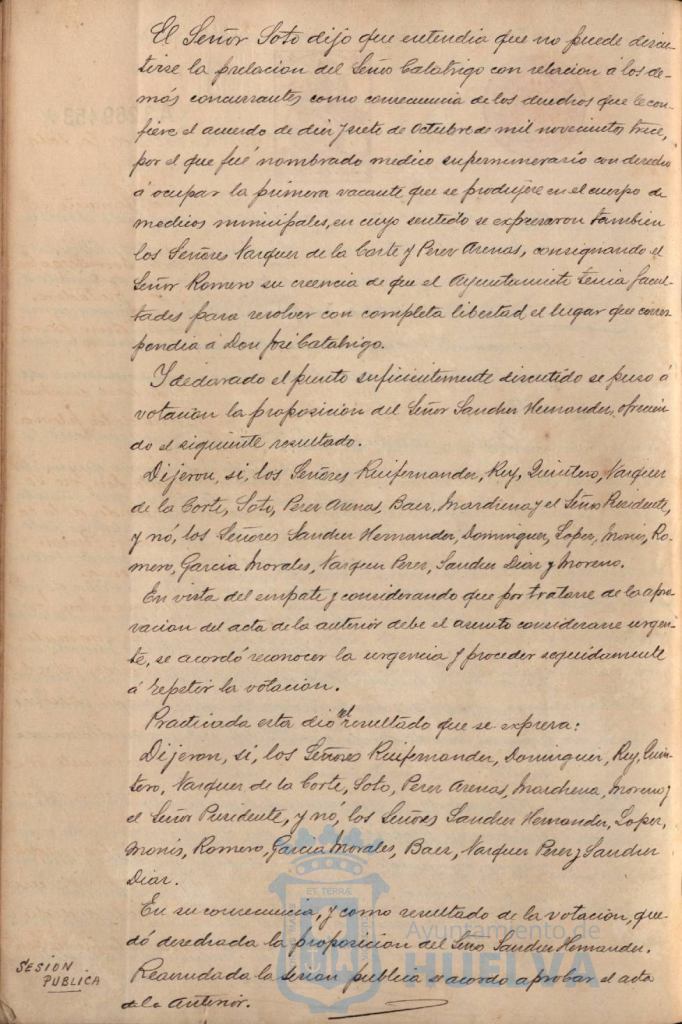 El Señor Soto dijo que entendia que no puede discu-
tirse la prelacion del Señor Calatrigo con relacion á los de-
más concursantes como consecuencia de los derechos que le con-
fiere el acuerdo de diez y siete de Octubre de mil novecientos trece,
por el que fué nombrado medico supernumerario con derecho
á ocupar la primera vacante que se produjere en el cuerpo de
medicos municipales, en cuyo sentido se expresaron tambien
los Señores Vazquez de la Corte y Perez Arenas, consignando el
Señor Romero su creencia de que el Ayuntamiento tenia facul-
tades para resolver con completa libertad el lugar que corres-
pondia á Don José Calatrigo.
Y declarado el punto suficientemente discutido se puso á
votacion la proposicion del Señor Sanchez Hernandez, ofrecien-
do el siguiente resultado.
Dijeron, si, los Señores Ruifernandez, Rey, Quintero, Vazquez
de la Corte, Soto, Perez Arenas, Baez, Marchena y el Señor Presidente,
y nó, los Señores Sanchez Hernandez, Dominguez, Lopez, Monis, Ro-
mero, Garcia Morales, Vazquez Perez, Sanchez Diaz y Moreno.
En vista del empate y considerando que por tratarse de la apro-
vacion del acta de la anterior debe el asunto considerarse urgen-
te, se acordó reconocer la urgencia y proceder seguidamente
á repetir la votacion.
Practicada esta dió el resultado que se expresa:
Dijeron, si, los Señores Ruifernandez, Dominguez, Rey, Quin-
tero, Vazquez de la Corte, Soto, Perez Arenas, Marchena, Moreno y
el Señor Presidente, y nó, los Señores Sanchez Hernandez, Lopez,
Monis, Romero, Garcia Morales, Baez, Vazquez Perez y Sanchez
Diaz.
En su consecuencia, y como resultado de la votacion, que-
dó desechada la proposicion del Señor Sanchez Hernandez.
SESION PUBLICA
Reanudada la sesion publica se acordo aprobar el acta
de la anterior.
Ayuntamiento de
HUELVA